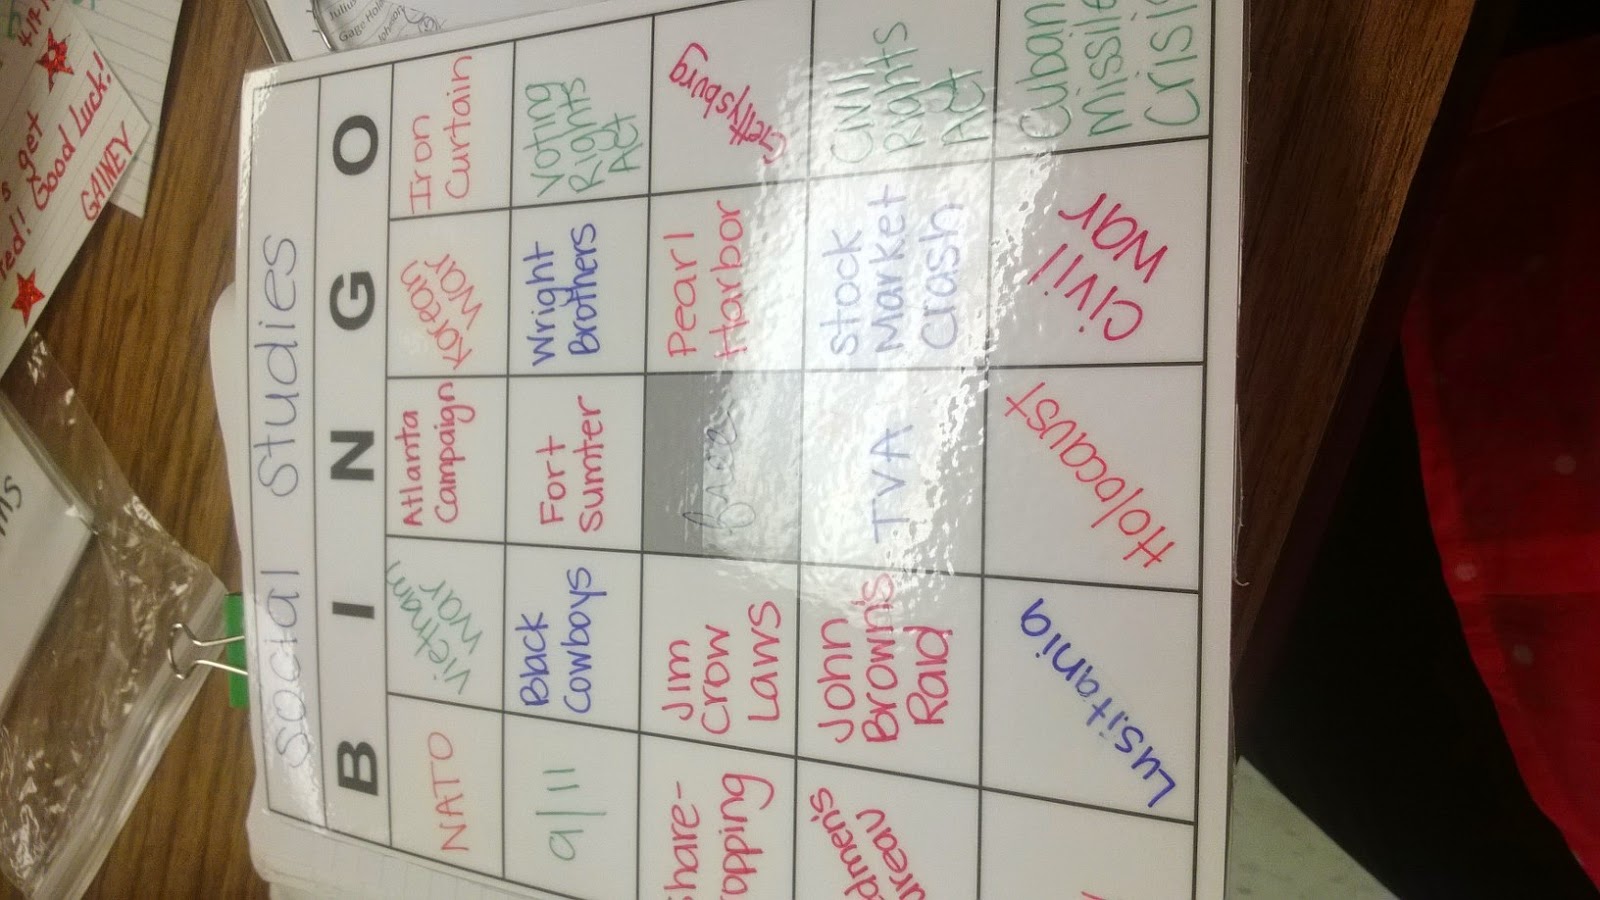 Social Studies
B I N G O
NATO
Vietnam
War
Atlanta
Campaign
Korean
War
Iron
Curtain
9/11
Black
Cowboys
Fort
Sumter
Wright
Brothers
Voting
Rights
Act
Share-
opping
Jim
Crow
Laws
free
Pearl
Harbor
Gettysburg
dmen's
reau
John
Brown's
Raid
TVA
Stock
Market
Crash
Civil
Rights
Act
Lusitania
Holocaust
Civil
War
Cuban
Missile
Crisis
s get
red!! Good Luck!
GAINEY
Julius
Gage